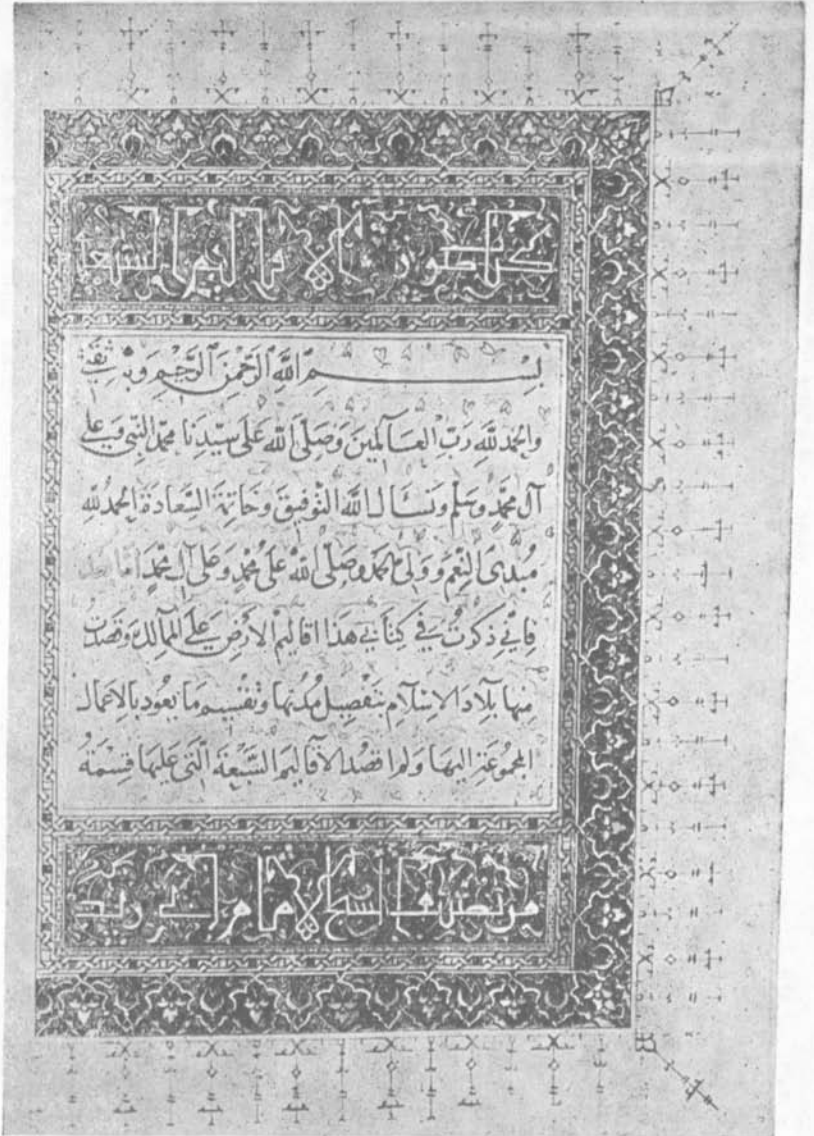 كتاب صور الاقاليم السبعة
بِسْمِ اللَّهِ الرَّحْمٰنِ الرَّحِيْمِ وَبِهِ ثِقَتِي
والحمد للّه رَبّ العَالمينَ وَصَلَى الله عَلَى سيّدِنا محمّد النّبي وَعلى
آل محمّدٍ وسَلم وَنسْال اللّه التوفيقَ وخَاتمَة السّعادَة الحمدُ للّه
مُبدئ النِعَم وَوَلى الحمد وصَلّى اللّهُ عَلى محمدٍ وَعَلى آل محمّدٍ امّا بعد
فاني ذكرتُ في كتابي هذا اقاليم الأرض عَلى الممالك وَقصدتُ
منها بلاد الاسْلام بتفصِيل مُدنها وَتقسيم مَا يعُود بالاعمال
المجموُعَة اليهَا وَلم اقصُد الاقاليم السَبْعَة التي عَليها قِسْمَةُ
من تصنيف الشيخ الامام ابى زيد